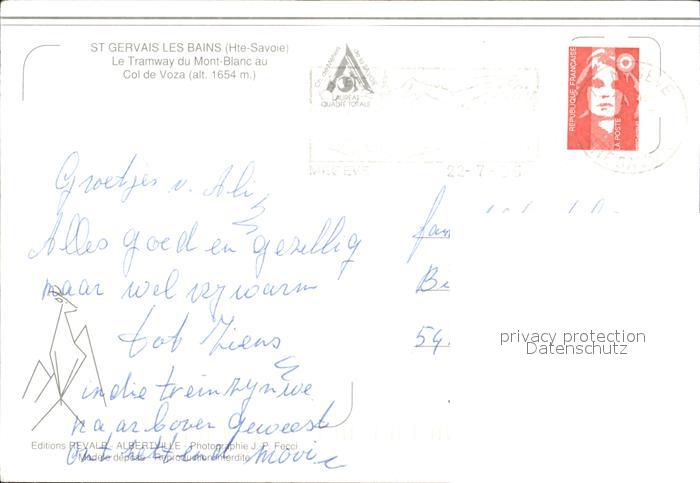 ST GERVAIS LES BAINS (Hte-Savoie)
Le Tramway du Mont-Blanc au
Col de Voza (alt. 1654 m.)
LAUREAT
QUALITE TOTALE
MEGEVE
22-7-
REPUBLIQUE FRANÇAISE
LA POSTE
Groetjes v. Ali
Alles goed en gezellig
maar wel vry warm
tot Ziens
in die trein zyn we
naar boven geweest
ontzettend mooi
fam
Bi
54
privacy protection
Datenschutz
Editions REVALP - ALBERTVILLE - Photographie J. P. Fecci
Modèle déposé - Reproduction interdite